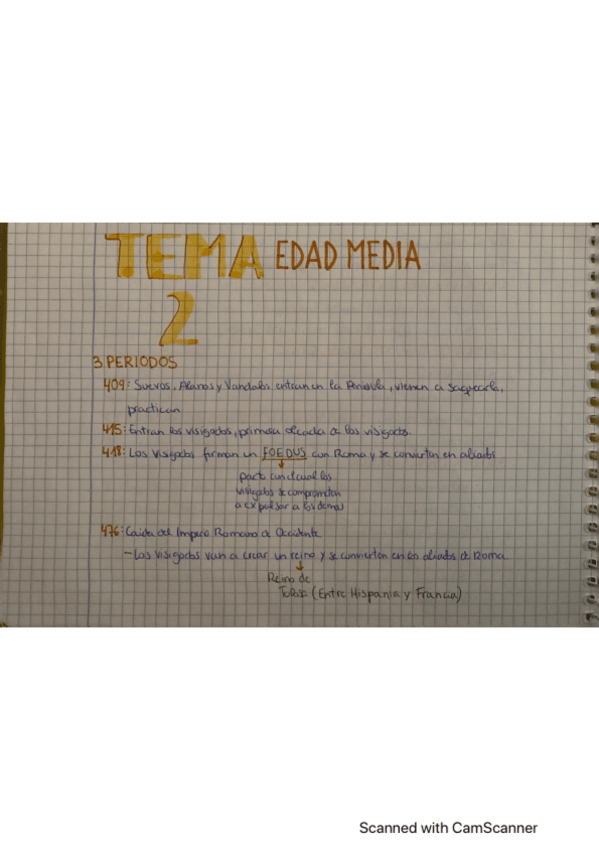 TEMA EDAD MEDIA
2
3 PERIODOS
409: Suevos, Alanos y Vandalos entran en la Península, vienen a saquearla,
practican
415: Entran los visigodos, primera oleada de los visigodos.
418: Los Visigodos firman un FOEDUS con Roma y se convierten en aliados
pacto con el cual los
visigodos se comprometen
a expulsar a los demas
476: Caída del Imperio Romano de Occidente
- Los visigodos van a crear un reino y se convierten en los aliados de Roma.
Reino de
(Entre Hispania y Francia)
Scanned with CamScanner